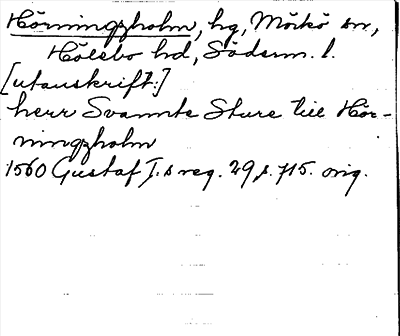 Hörningzholm, hg, Mörkö sn,
Hölebo hd, Söderm. l.
[utanskrift:]
herr Svannte Sture till Hör-
ningzholm
1560 Gustaf I:s reg. 29, s. 715. orig.